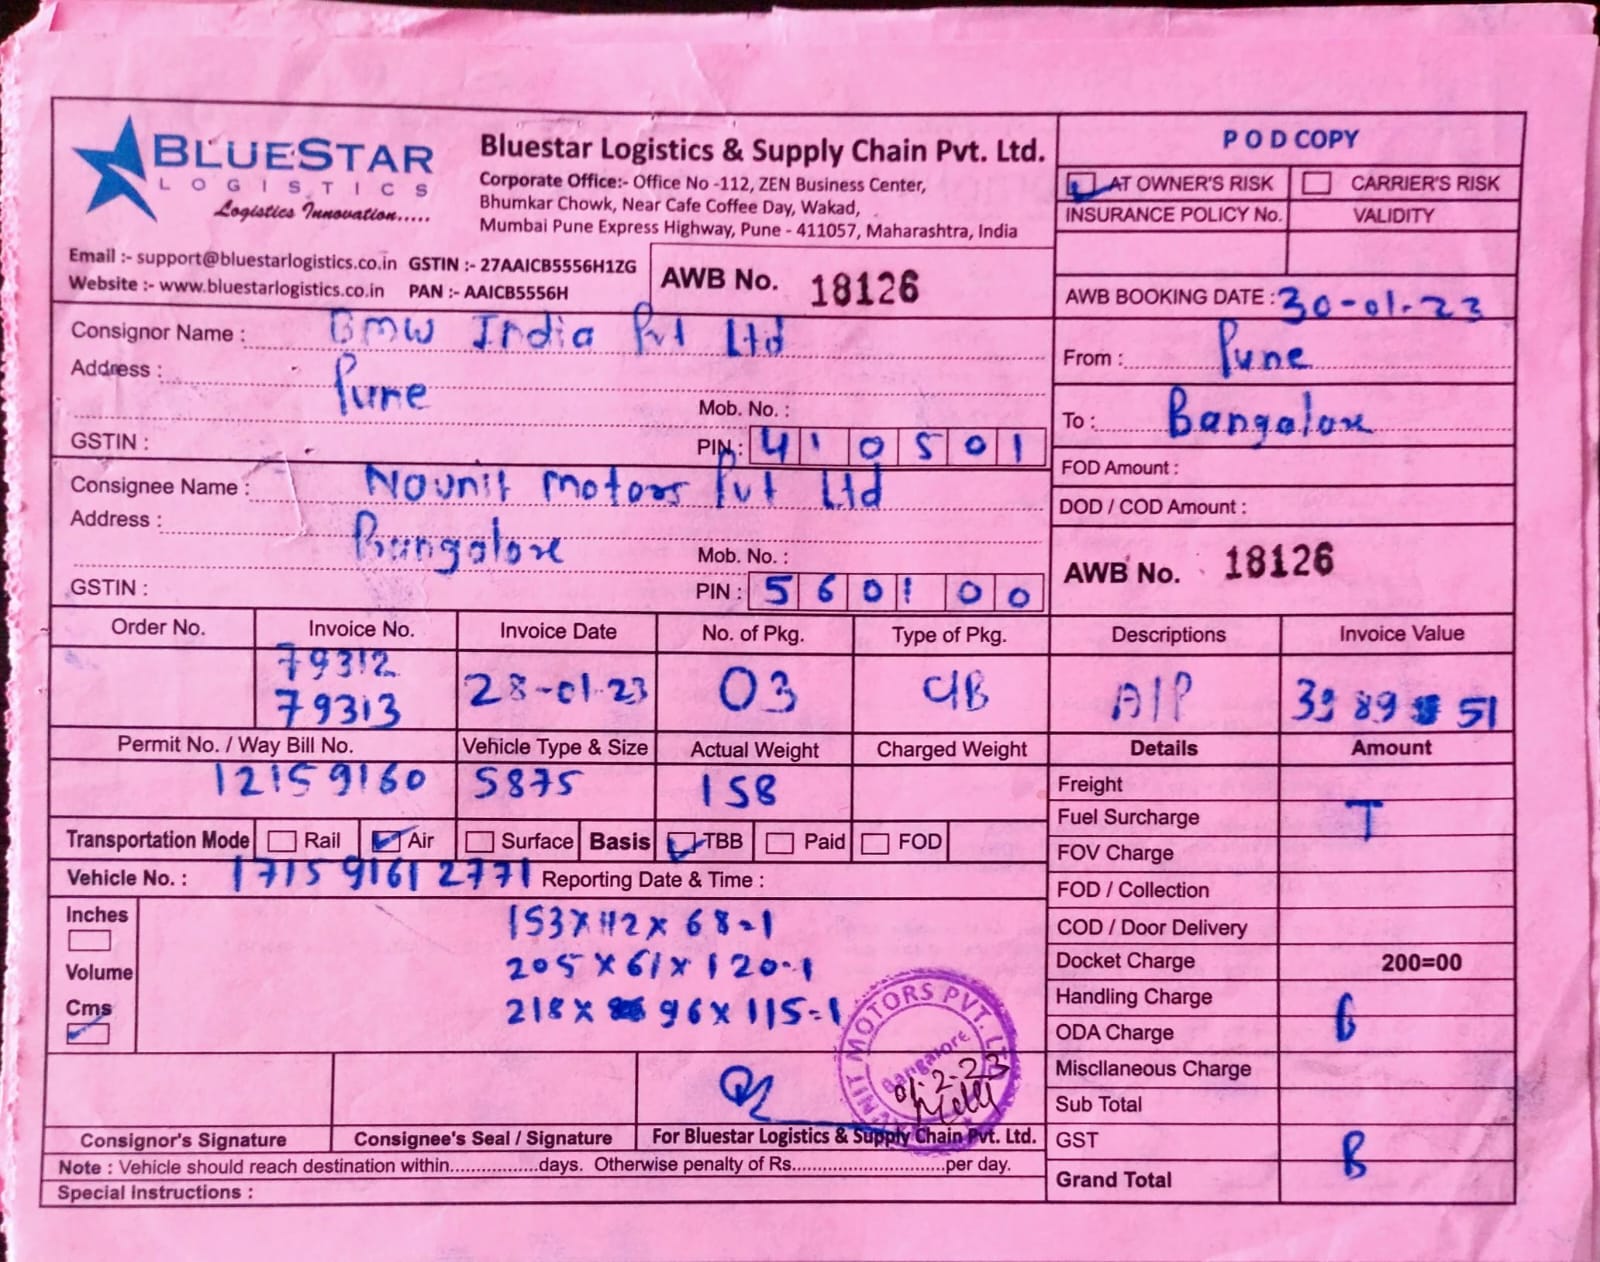 BLUESTAR
LOGISTICS
Logistics Innovation.....
Bluestar Logistics & Supply Chain Pvt. Ltd.
Corporate Office:- Office No -112, ZEN Business Center,
Bhumkar Chowk, Near Cafe Coffee Day, Wakad,
Mumbai Pune Express Highway, Pune - 411057, Maharashtra, India
Email :- support@bluestarlogistics.co.in GSTIN :- 27AAICB5556H1ZG
Website :- www.bluestarlogistics.co.in PAN :- AAICB5556H
AWB No. 18126
POD COPY
AT OWNER'S RISK CARRIER'S RISK
INSURANCE POLICY No. VALIDITY
AWB BOOKING DATE : 30-01-23
Consignor Name : BMW India Pvt Ltd
Address : Pune
Mob. No. :
GSTIN : PIN : 410501
From : Pune
To : Bangalore
FOD Amount :
DOD / COD Amount :
Consignee Name : Nounit Motors Pvt Ltd
Address : Bangalore
Mob. No. :
GSTIN : PIN : 560100
AWB No. 18126
Order No. Invoice No. Invoice Date No. of Pkg. Type of Pkg. Descriptions Invoice Value
79312
79313 28-01-23 03 CB A/P
Permit No. / Way Bill No. Vehicle Type & Size Actual Weight Charged Weight Details Amount
12159160 5875 158
Freight
Fuel Surcharge T
FOV Charge
FOD / Collection
COD / Door Delivery
Docket Charge 200=00
Handling Charge
ODA Charge B
Miscllaneous Charge
Sub Total
GST B
Grand Total
Transportation Mode Rail Air Surface Basis TBB Paid FOD
Vehicle No. : 171591612771 Reporting Date & Time :
Inches
Volume
Cms
153 x 112 x 68-1
205 x 61 x 120-1
218 x 96 x 115-1
NIT MOTORS PVT. LTD
Bangalore
01-2-23
Consignor's Signature Consignee's Seal / Signature For Bluestar Logistics & Supply Chain Pvt. Ltd.
Note : Vehicle should reach destination within.................days. Otherwise penalty of Rs..............................per day.
Special Instructions :